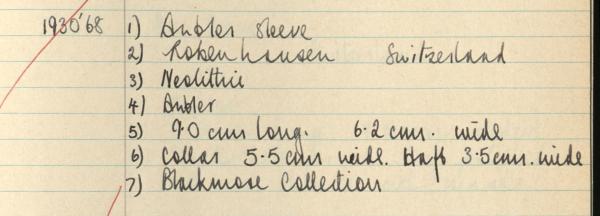 1930'68 1) Antler sleeve
2) Robenhausen Switzerland
3) Neolithic
4) Antler
5) 9.0 cms long. 6.2 cms. wide
6) Collar 5.5 cms wide. Haft 3.5 cms. wide
7) Blackmore Collection